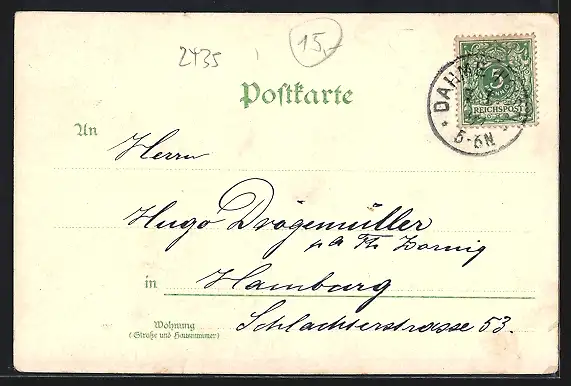 2435
15,-
Postkarte
DAHME
5
REICHSPOST
5-6N
An
Herrn
Hugo Drögemüller
in
Hamburg
Wohnung
(Straße und Hausnummer)
Schlachterstrasse 53.